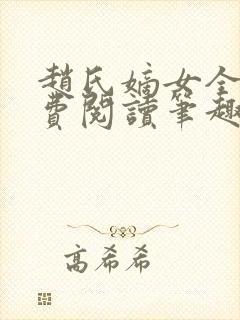 趙氏嫡女全
費閱讀筆趣
高希希